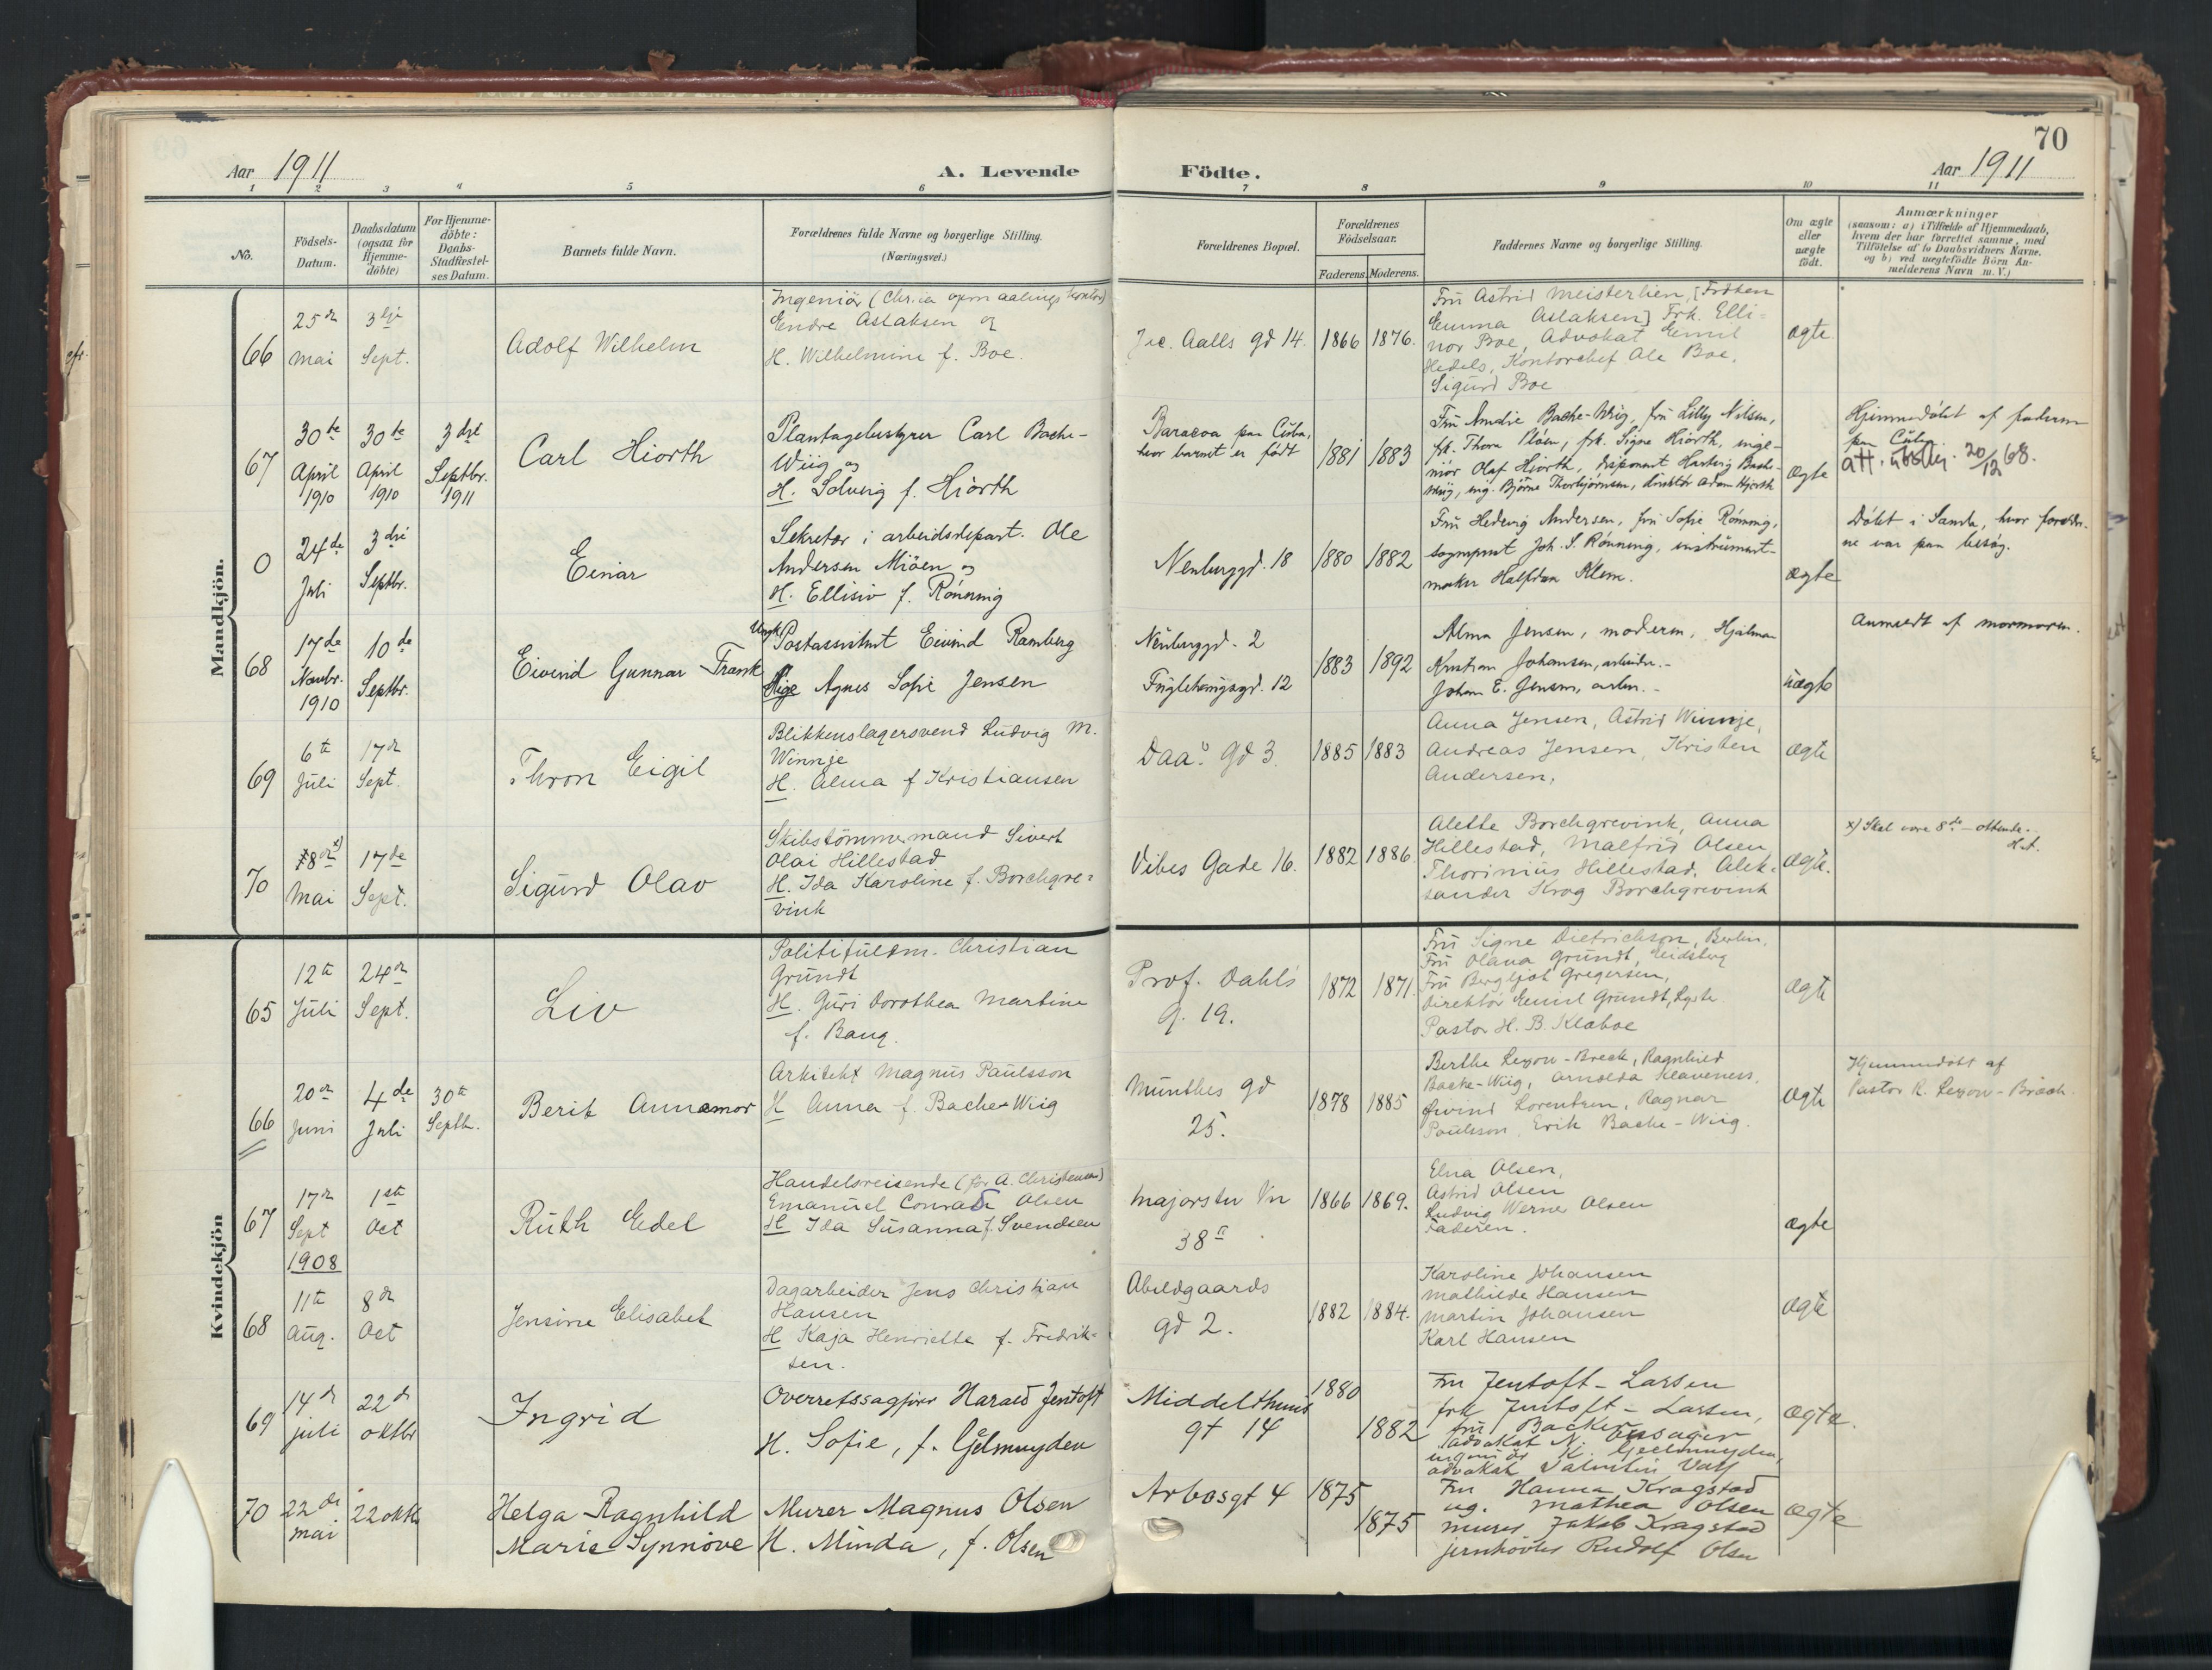 70
Aar 1911
A. Levende
Födte.
Aar 1911
1 2 3 4 5 6 7 8 9 10 11
No.
Födsels-
Datum.
Daabsdatum
(ogsaa for
Hjemme-
döbte)
For Hjemme-
döbte:
Daabs-
Stadfæstel-
ses Datum.
Barnets fulde Navn.
Forældrenes fulde Navne og borgerlige Stilling.
(Næringsvei.)
Forældrenes Bopæl.
Forældrenes
Födselsaar.
Faderens. Moderens.
Faddernes Navne og borgerlige Stilling.
Om ægte
eller
uægte
födt.
Anmærkninger
(saasom: a) i Tilfælde af Hjemmedaab,
hvem der har forrettet samme, med
Tilföielse af to Daabsvidners Navne.
og b) ved uægtefödte Börn An-
melderens Navn m. V.)
Mandkjön.
66
25de
mai
3dje
Sept.
Adolf Wilhelm
Ingeniör (Chr.ia opmaalings kontor)
Endre Aslaksen og
H. Wilhelmine f. Boe.
Jac. Aalls gd 14.
1866 1876.
Fru Astrid Meisterlien, [Fröken
Emma Aslaksen] Frk. Elli-
nor Boe, Advokat Emil
Hedels, Kontorchef Ole Boe,
Sigurd Boe
ægte
67
30te
April
1910
30te
April
1910
3dje
Septbr.
1911
Carl Hiorth
Plantagebestyrer Carl Bache-
Wiig og
H. Solveig f. Hiorth
Baracoa paa Cuba,
hvor barnet er født
1881 1883
Fru Amalie Bache-Wiig, fru Lilly Nilsen,
frk. Thora Pløen, frk. Signe Hiorth, inge-
niør Olaf Hiorth, disponent Hartvig Bache-
Wiig, ing. Björne Thorbjörnsen, direktör Adam Hjorth
ægte
Hjemmedöbt af faderen
paa Cuba.
att. utst. 20/12 68.
0
24de
Juli
3dje
Septbr.
Einar
Sekretær i arbeidsdepart. Ole
Andersen Miöen og
H. Ellisiv f. Rönning
Neuberggd. 18
1880 1882
Fru Hedvig Andersen, fru Sofie Rönning,
sogneprest Joh. S. Rönning, instrument-
maker Halfdan Klem.
ægte
Döbt i Sande, hvor foreldre-
ne var paa besög.
68
17de
Novbr.
1910
10de
Septbr.
Eivind Gunnar Frank
Ungk. Postassistent Eivind Ramberg
Pige Agnes Sofie Jensen
Neuberggd. 2
Fuglehaugsgd. 12
1883 1892
Alma Jensen, moderen, Hjalmar
Kristian Johansen, arbeider.-
Johan E. Jensen, arbei.-
uægte
Anmeldt af mormoren.
69
6te
Juli
17de
Sept.
Thron Eigil
Blikkenslagersvend Ludvig M.
Winnje
H. Alma f Kristiansen
Daas Gd 3.
1885 1883
Anna Jensen, Astrid Winnje,
Andreas Jensen, Kristen
Andersen.
ægte
70
8de x)
Mai
17de
Sept.
Sigurd Olav
Skibstömmermand Sivert
Olai Hillestad
H. Ida Karoline f. Borchgre-
vink
Vibes Gade 16.
1882 1886.
Alette Borchgrevink, Anna
Hillestad, Malfrid Olsen,
Thorinius Hillestad, Alek-
sander Krog Borchgrevink
ægte.
x) Skal være 8de - ottende.
Kvindekjön
65
12te
Juli
24de
Sept.
Liv
Politifuldm. Christian
Grundt
H. Guri Dorothea Martine
f. Bang.
Prof. Dahls
g. 19.
1872 1871.
Fru Signe Dietrichson, Berlin,
Fru Olava Grundt, Eidsberg
Fru Bergljot Gregersen,
Direktör Emil Grundt,
Pastor H. B. Klæboe
ægte
66
20de
Juni
4de
Juli
30te
Septbr.
Berit Annamor
Arkitekt Magnus Paulsson
H Anna f. Backe-Wiig
Munthes gd
25.
1878 1885
Berthe Lexow-Breck, Ragnhild
Backe-Wiig, Arnolda Klaveness,
Øivind Lorentzen, Ragnar
Paulsson, Erik Backe-Wiig.
ægte
Hjemmedöbt af
Pastor R. Lexow-Bräch.
67
17de
Sept
1908
1ste
Oct
Ruth Edel
Handelsreisende (for A. Christensen)
Emanuel Conrad Olsen
H Ida Susanna f. Svendsen
Majorstu Vn
38 II
1866 1869.
Elna Olsen,
Astrid Olsen
Ludvig Werner Olsen
Faderen.
ægte
68
11te
Aug.
8de
Oct
Jensine Elisabet
Dagarbeider Jens Christian
Hansen
H Kaja Henriette f. Fredrik-
sen.
Abildgaards
gd 2.
1882 1884.
Karoline Johansen
Mathilde Hansen
Martin Johansen
Karl Hansen
ægte
69
14de
juli
22de
oktbr
Ingrid
Overretssagförer Harald Jentoft
H. Sofie, f. Gjelmuyden
Middelthuns
gt 14
1880
1882
Fru Jentoft-Larsen
frk Jentoft-Larsen,
fru Backer
advokat N. Onsager
ingeniör K. Geelmuyden,
advokat Valentin Voss
ægte.
70
22de
mai
22 oktb
Helga Ragnhild
Marie Synnöve
Murer Magnus Olsen
H. Minda, f. Olsen
Arbosgt 4
1875
1875
Fru Hanna Kragstad
ug. Mathea Olsen
murer Jakob Kragstad
jernhövler Rudolf Olsen
ægte